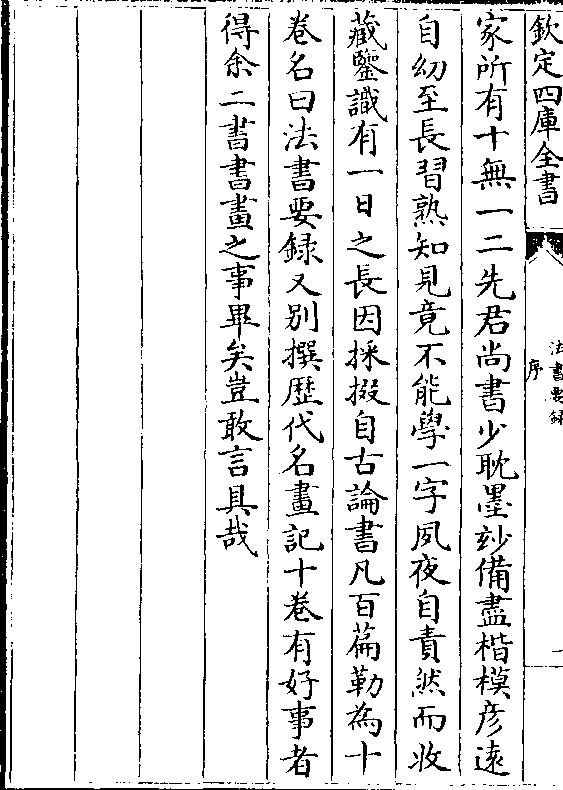 欽定四庫全書
法書要録
序
一
家所有十無一二先君尚書少耽墨玅備盡楷模彦遠
自幼至長習熟知見竟不能學一字夙夜自責然而收
藏鑒識有一日之長因採掇自古論書凡百篇勒為十
卷名曰法書要録又别撰歴代名畫記十卷有好事者
得余二書書畫之事畢矣豈敢言具哉